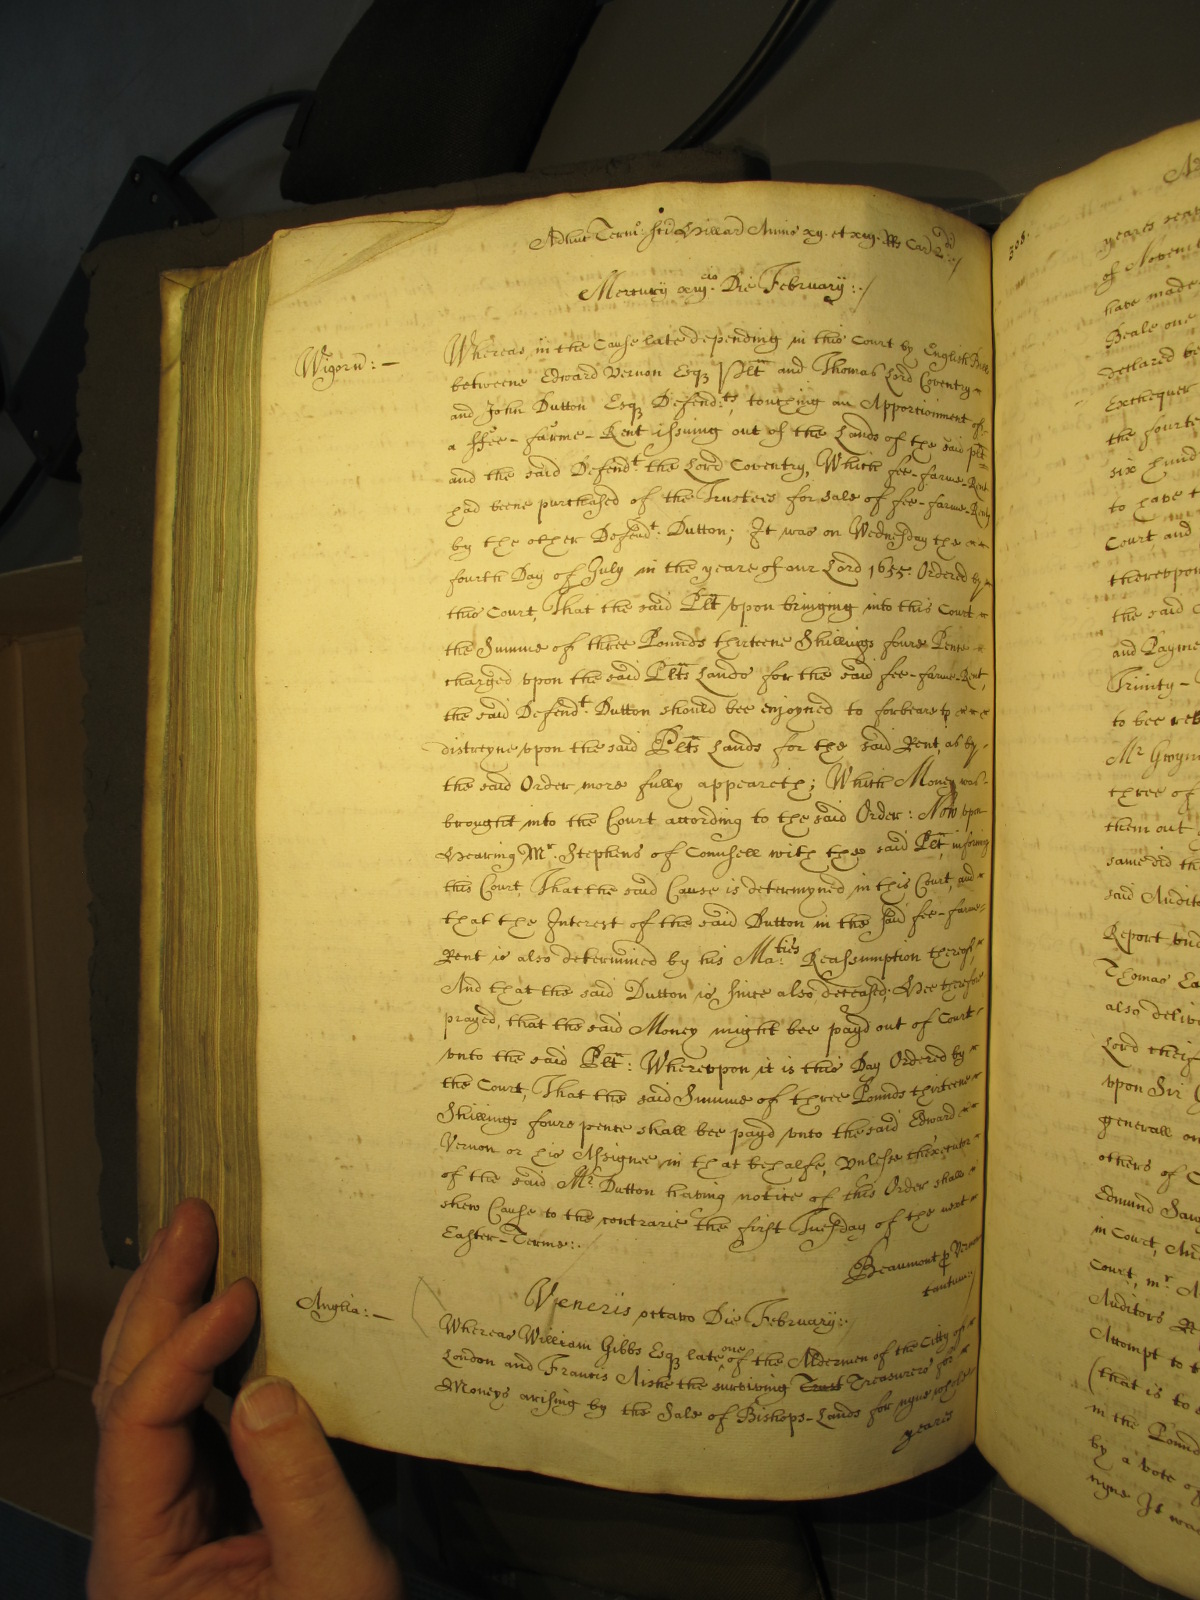 Adhuc Term: Sci Hillarij Annis xij. et xiij. RRs Car: 2di:/
Mercurij xiijcio. Die February:./
Wigorn:—
Whereas in the Cause late depending in this Court by English Bill
betweene Edward Vernon Esqz Plt and Thomas Lord Coventry
and John Dutton Esqz Defendts, touching an Apportionment of
a ffee-farme-Rent issuing out of the Lands of the said plt
and the said Defendt the Lord Coventry, Which fee-farme-Rent
had beene purchased of the Trustees for sale of fee-farme-Rents
by the other Defendt: Dutton; It was on Wednesday the
fourth Day of July in the yeare of our Lord 1655. Ordered by
this Court, That the said Plt vpon bringing into this Court
the Summe of three Pounds thirteene Shillings foure Pence
charged vpon the said Plts Lands for the said fee-farme-Rent,
the said Defendt: Dutton should bee enjoyned to forbeare to
distreyne vpon the said Plts Lands for the said Rent, as by
the said Order more fully appeareth; Which Money was
brought into the Court according to the said Order: Now vpon
Hearing Mr. Stephens of Counsell with the said Plt, informing
this Court That the said Cause is determyned in this Court, and
that the Interest of the said Dutton in the said fee-farme
Rent is also determined by his Maties: Reassumption thereof,
And that the said Dutton is since also deceased; Hee therefore
prayed, that the said Money might bee payd out of Court
vnto the said Plt: Wherevpon it is this Day Ordered by
the Court, That the said Summe of three Pounds thirteene
Shillings foure pence shall bee payd vnto the said Edward
Vernon or his Assignee in that behalfe, Unlesse the executor
of the said Mr. Dutton having notice of this Order shall
shew Cause to the contrarie the first Tuesday of the next
Easter-Terme:.
Beaumont p Vernon
tantum:/
Veneris octavo Die February:.
Anglia:—
Whereas William Gibbs Esqz late one of the Aldermen of the Citty of
London and Francis Aishe the surviving Treasurers for
Moneys arising by the Sale of Bishops-Lands for nyne whole
yeares
305.
yeares
of Novem
have made
Beale one
declared
Exchequer
the fourte
six hund
to have t
Court and
therevpon
the said
and Payme
Trinity-
to bee
Mr Gwynn
three of
them out
same did th
said Audito
Report
Thomas
also deliv
Lord cheif
vpon Sir
generall
others of
Edmund Saw
in Court, An
Court, mr.
Auditors
Attempt to t
(that is to
in the Pound
by a vote of
nyne It was